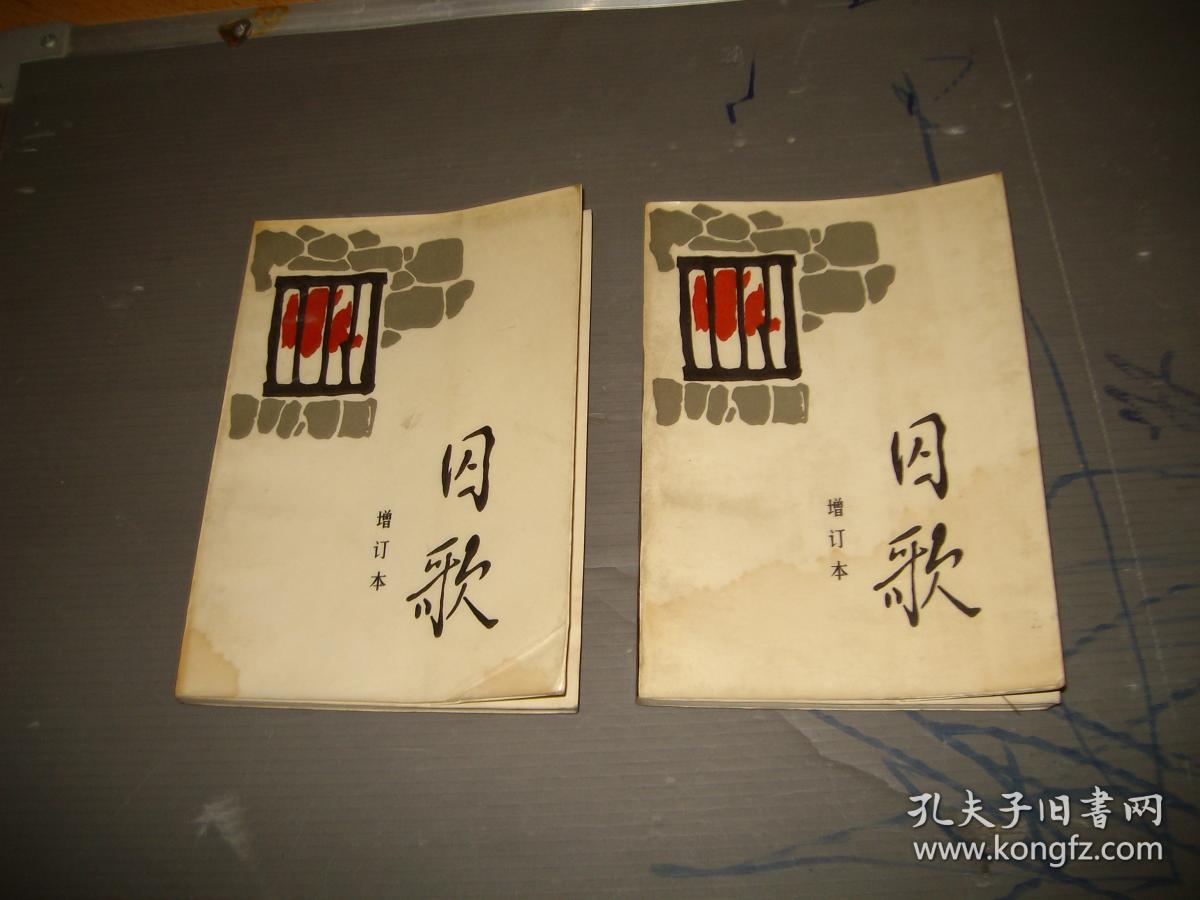 囚歌
增订本
囚歌
增订本
孔夫子旧书网
www.kongfz.com